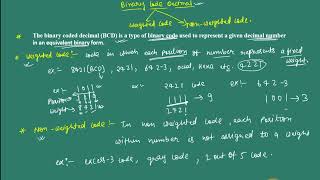 Binary Code Decimal
weighted code
non-weighted code.
* The binary coded decimal (BCD) is a type of binary code used to represent a given decimal number
in an equivalent binary form.
* Weighted code:- code in which each position of number represents a fixed weight.
ex:- 8421(BCD), 2421, 642-3, octal, Hexa etc. 4221
ex:- 1011
Position
weight 8421
ex:- 2421 code
1111 → 9
2421
ex:- 642-3
1001 → 3
* Non-weighted code:- In non weighted code, each Position
within number is not assigned to a weight
ex:- excess-3 code, gray code, 2 out of 5 code.